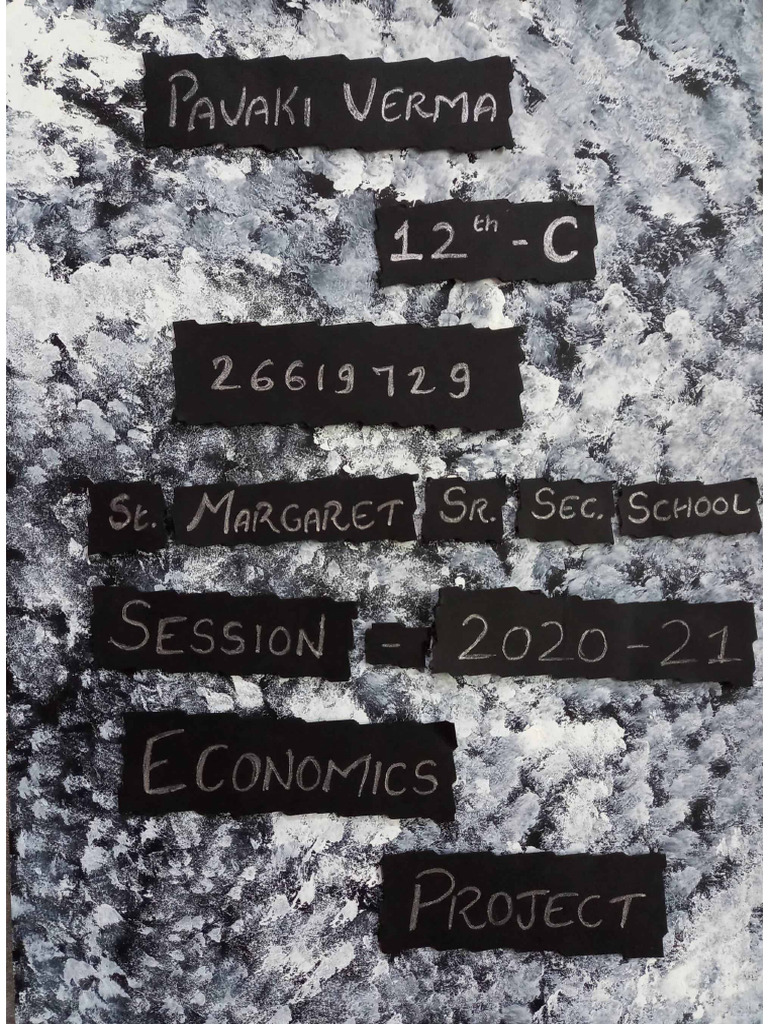 PAVAKI VERMA
12th - C
26619729
St. MARGARET SR. SEC. SCHOOL
SESSION - 2020-21
ECONOMICS
PROJECT